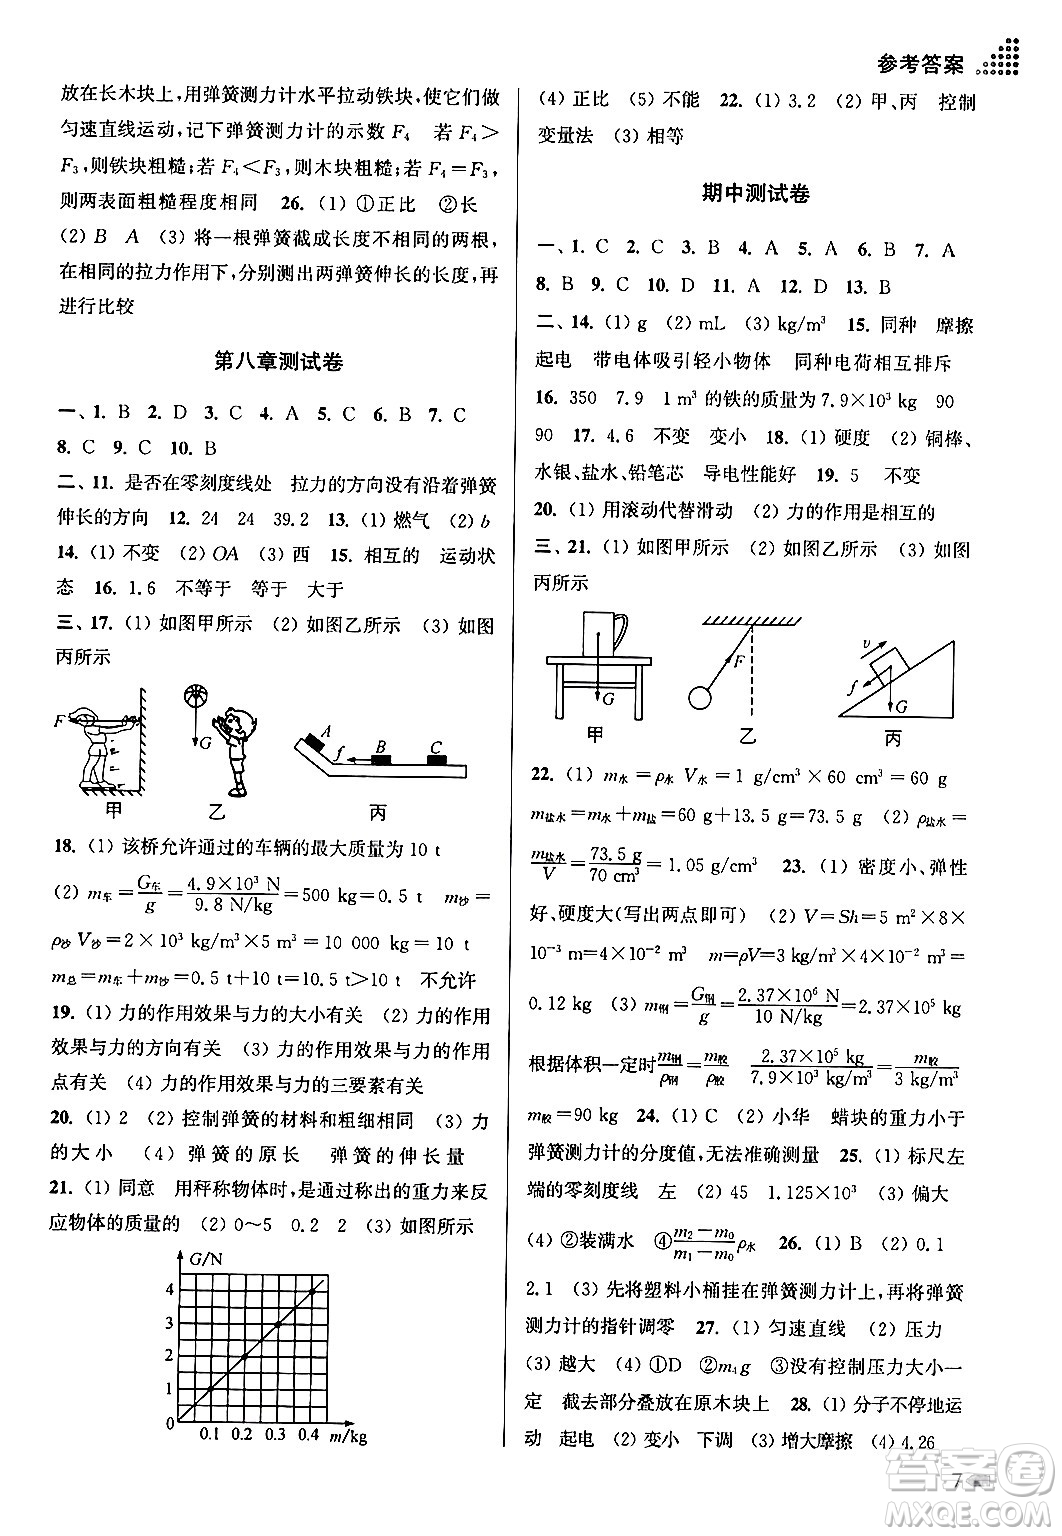 参考答案
放在长木块上,用弹簧测力计水平拉动铁块,使它们做
匀速直线运动,记下弹簧测力计的示数 F₄　若 F₄>
F₃,则铁块粗糙;若 F₄<F₃,则木块粗糙;若 F₄=F₃,
则两表面粗糙程度相同　26. (1) ①正比　②长
(2) B　A　(3) 将一根弹簧截成长度不相同的两根,
在相同的拉力作用下,分别测出两弹簧伸长的长度,再
进行比较
第八章测试卷
一、1. B　2. D　3. C　4. A　5. C　6. B　7. C
8. C　9. C　10. B
二、11. 是否在零刻度线处　拉力的方向没有沿着弹簧
伸长的方向　12. 24　24　39.2　13. (1) 燃气　(2) b
14. (1) 不变　(2) OA　(3) 西　15. 相互的　运动状
态　16. 1.6　不等于　等于　大于
三、17. (1) 如图甲所示　(2) 如图乙所示　(3) 如图
丙所示
F
G
A
f
B
C
甲　乙　丙
18. (1) 该桥允许通过的车辆的最大质量为 10 t
(2) m车=G车/g=4.9×10³ N/9.8 N/kg=500 kg=0.5 t　m沙=
ρ沙 V沙=2×10³ kg/m³×5 m³=10 000 kg=10 t
m总=m车+m沙=0.5 t+10 t=10.5 t>10 t　不允许
19. (1) 力的作用效果与力的大小有关　(2) 力的作用
效果与力的方向有关　(3) 力的作用效果与力的作用
点有关　(4) 力的作用效果与力的三要素有关
20. (1) 2　(2) 控制弹簧的材料和粗细相同　(3) 力
的大小　(4) 弹簧的原长　弹簧的伸长量
21. (1) 同意　用秤称物体时,是通过称出的重力来反
应物体的质量的　(2) 0～5　0.2　2　(3) 如图所示
G/N
4
3
2
1
0
0.1 0.2 0.3 0.4 m/kg
(4) 正比　(5) 不能　22. (1) 3.2　(2) 甲、丙　控制
变量法　(3) 相等
期中测试卷
一、1. C　2. C　3. B　4. A　5. A　6. B　7. A
8. B　9. C　10. B　11. A　12. D　13. B
二、14. (1) g　(2) mL　(3) kg/m³　15. 同种　摩擦
起电　带电体吸引轻小物体　同种电荷相互排斥
16. 350　7.9　1 m³ 的铁的质量为 7.9×10³ kg　90
90　17. 4.6　不变　变小　18. (1) 硬度　(2) 铜棒、
水银、盐水、铅笔芯　导电性能好　19. 5　不变
20. (1) 用滚动代替滑动　(2) 力的作用是相互的
三、21. (1) 如图甲所示　(2) 如图乙所示　(3) 如图
丙所示
G
F
v
f
G
甲　乙　丙
22. (1) m水=ρ水 V水=1 g/cm³×60 cm³=60 g
m盐水=m水+m盐=60 g+13.5 g=73.5 g　(2) ρ盐水=
m盐水/V=73.5 g/70 cm³=1.05 g/cm³　23. (1) 密度小、弹性
好、硬度大(写出两点即可)　(2) V=Sh=5 m²×8×
10⁻³ m=4×10⁻² m³　m=ρV=3×4×10⁻² m³=
0.12 kg　(3) m钢=G钢/g=2.37×10⁶ N/10 N/kg=2.37×10⁵ kg
根据体积一定时m钢/ρ钢=m胶/ρ胶　2.37×10⁵ kg/7.9×10³ kg/m³=m胶/3 kg/m³
m胶=90 kg　24. (1) C　(2) 小华　蜡块的重力小于
弹簧测力计的分度值,无法准确测量　25. (1) 标尺左
端的零刻度线　左　(2) 45　1.125×10³　(3) 偏大
(4) ②装满水　④m₂−m₀/m₁−m₀ρ水　26. (1) B　(2) 0.1
2.1　(3) 先将塑料小桶挂在弹簧测力计上,再将弹簧
测力计的指针调零　27. (1) 匀速直线　(2) 压力
(3) 越大　(4) ①D　②m₄g　③没有控制压力大小一
定　截去部分叠放在原木块上　28. (1) 分子不停地运
动　起电　(2) 变小　下调　(3) 增大摩擦　(4) 4.26
7
答案圈
MXQE.COM